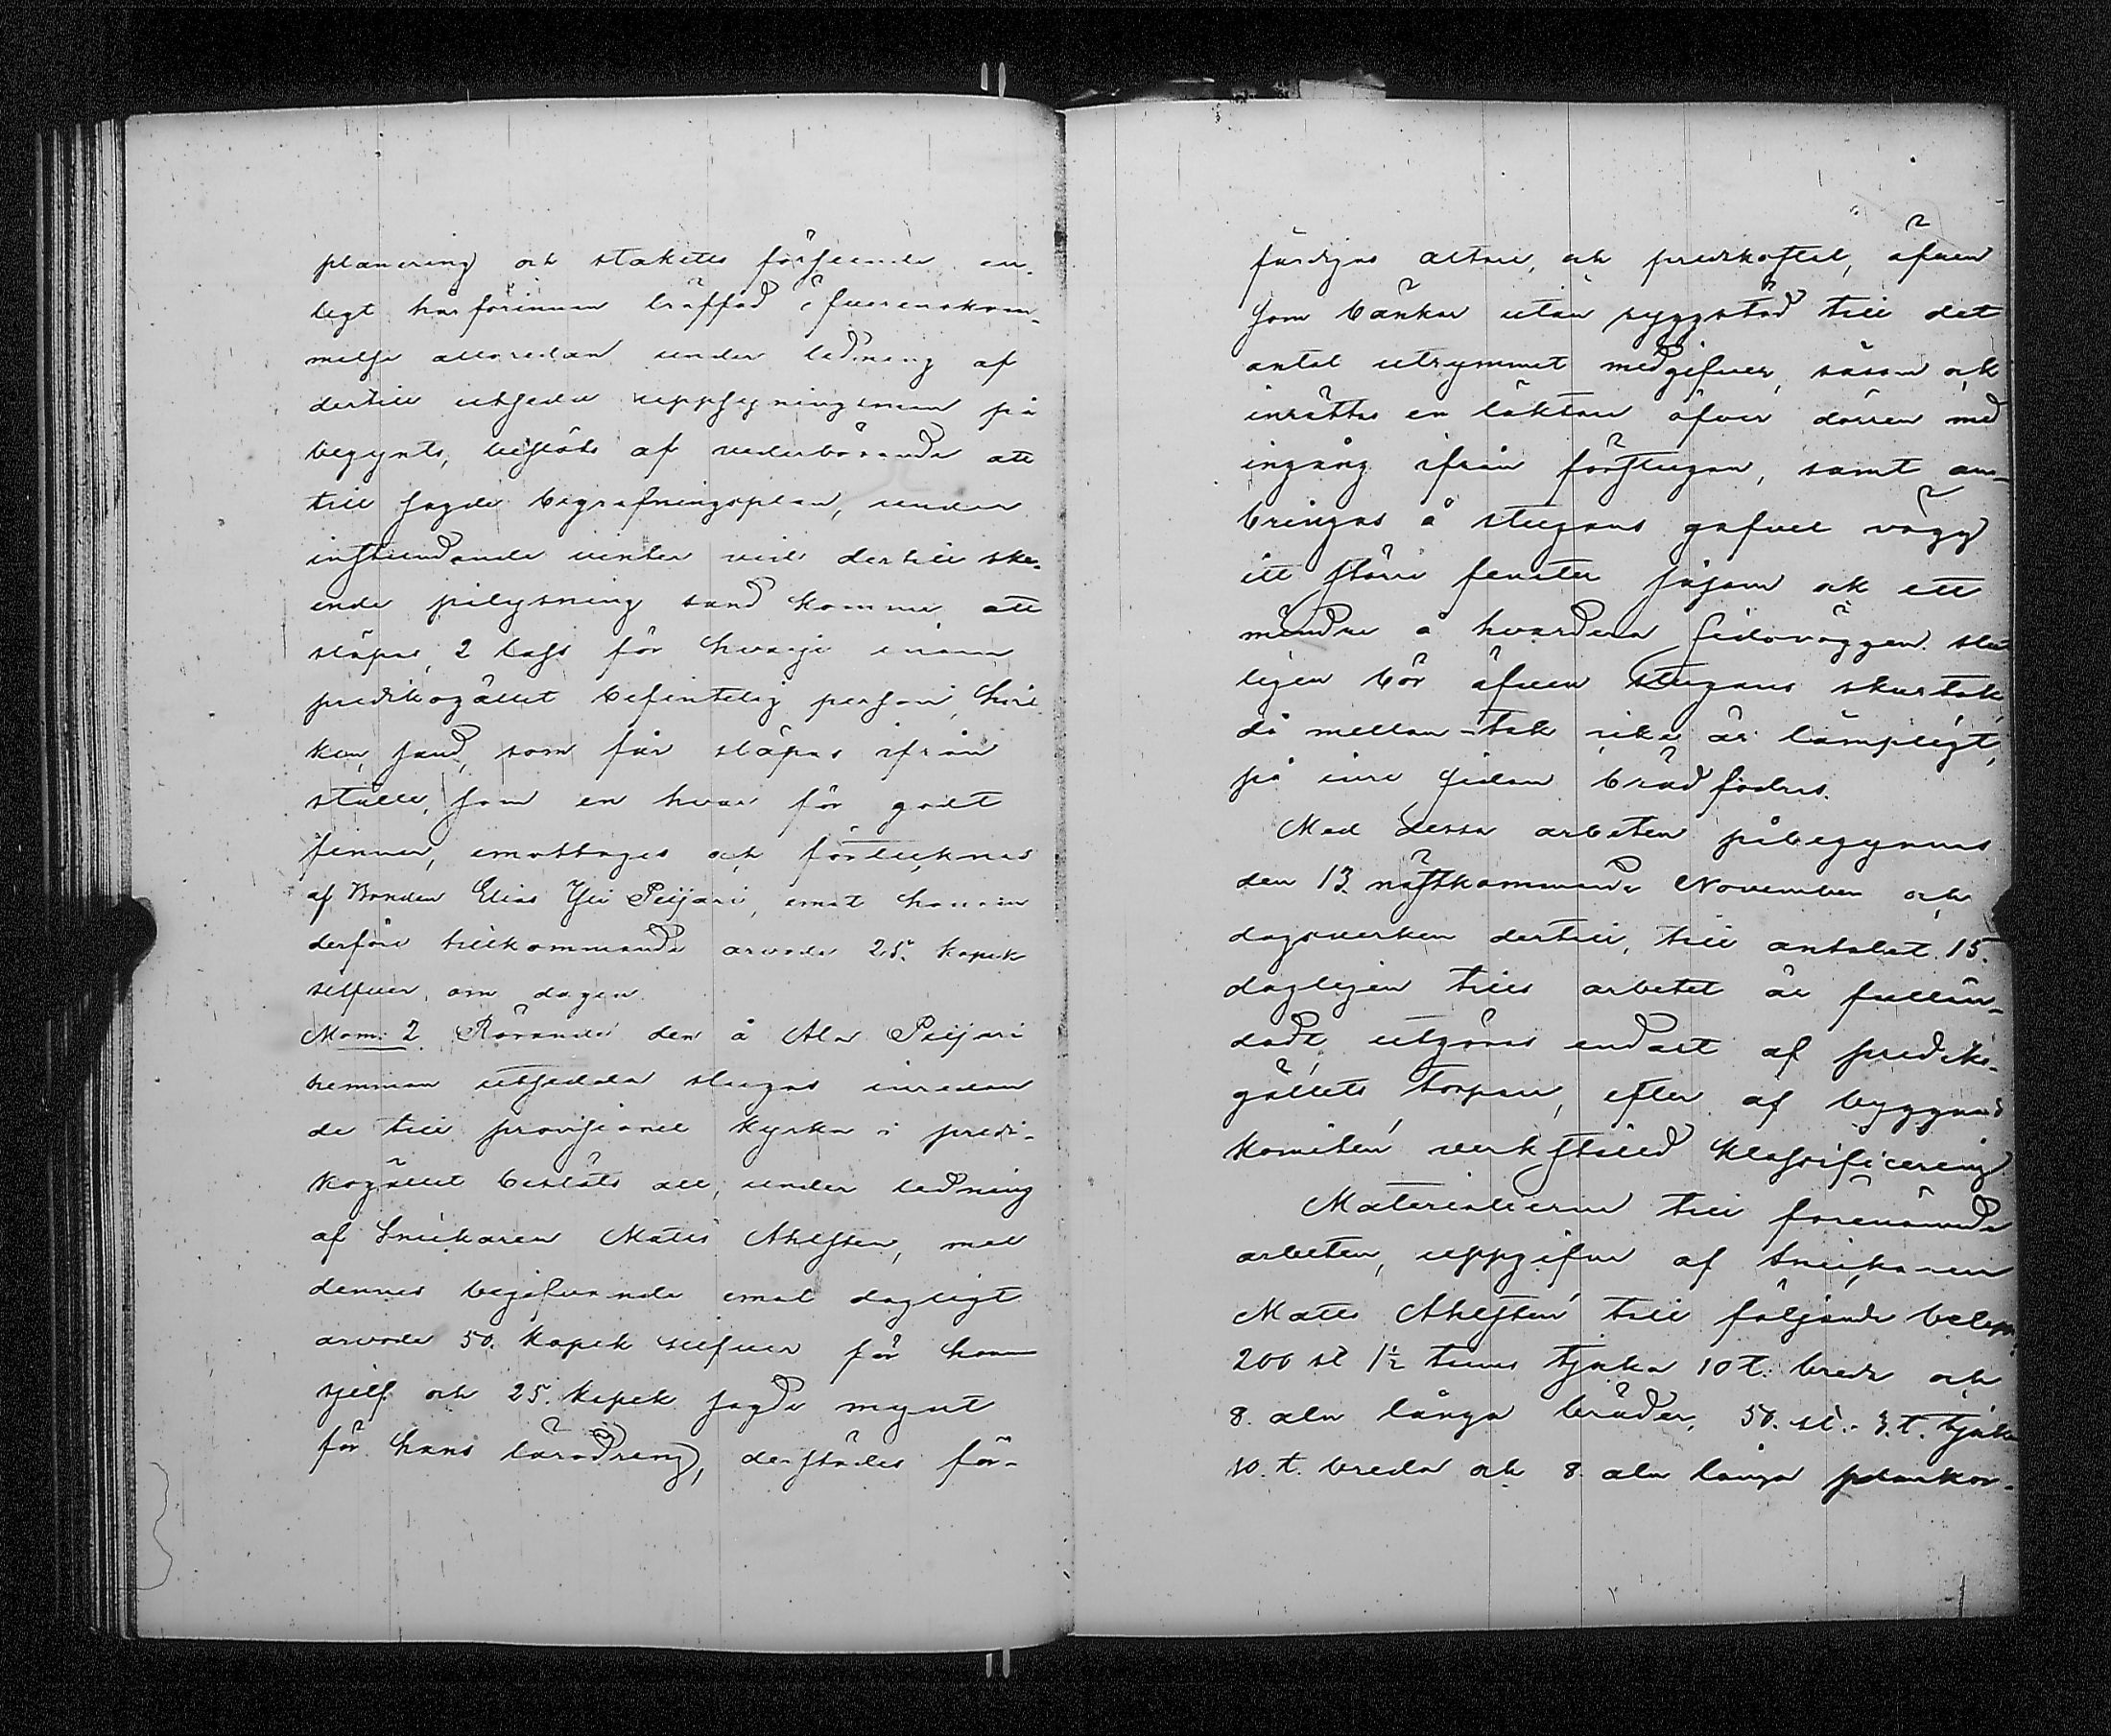 planering och stakets förseende en-
ligt härförinnan träffad öfverenskom-
melse allaredan under ledning af
dertill utsedde uppsyningsmän på
begynts, beslöts af vederbörande att
till sagde begrafningsplan, under
instundande vinter vid dertill ske-
ende pålysning sand komme att
släpas, 2 lass för hvarje inom
predikogället befintelig person, hvil
ken sand, som får släpas ifrån
ställe, som en hvar för godt
finner, emottages och förtecknas
af Bonden Elias Yli Peijari, emot honom
derföre tillkommande arvode 25. kopek
silfver, om dagen.
Mom: 2. Rörande den å Ala Peijari
hemman utsedda stugas inredan
de till provisionel kyrka i predi-
kogället beslöts att, under ledning
af Snickaren Matts Ahlsten, med
dennes begifvande emot dagligt
arvode 50. kopek silfver för honom
sjelf och 25. kopek sagde mynt
för hans lärodreng, derstädes för-
färdigas altare, och predikostol, äfven
som bänkar utan ryggstöd till det
antal utrymmet medgifver, såsom ock
inrättas en läktare öfver dörren med
ingång ifrån förstugan, samt an-
bringas å stugans gafvel vägg
ett större fenster såsom ock ett
mindre å hvardera sidoväggen. slut
ligen bör äfven stugans skurtak,
då mellan-tak icke är lämpligt,
på inre sidan brädfodras.
Med dessa arbeten påbegynnes
den 13 nästkommande November och
dagsverken dertill, till antalet 15.
dagligen tills arbetet är fullän-
dadt, utgöras endast af prediko-
gällets torpare, efter af byggnads
komitén verkställd klassificering
Materialierne till förenämnde
arbeten, uppgifne af Snickaren
Matts Ahlsten till följande belopp:
200 st 1½ tums tjocka 10 t. breda och
8. aln långa bräder, 50. st. 3. t. tjocka
10. t. breda och 8. aln långa plankor-